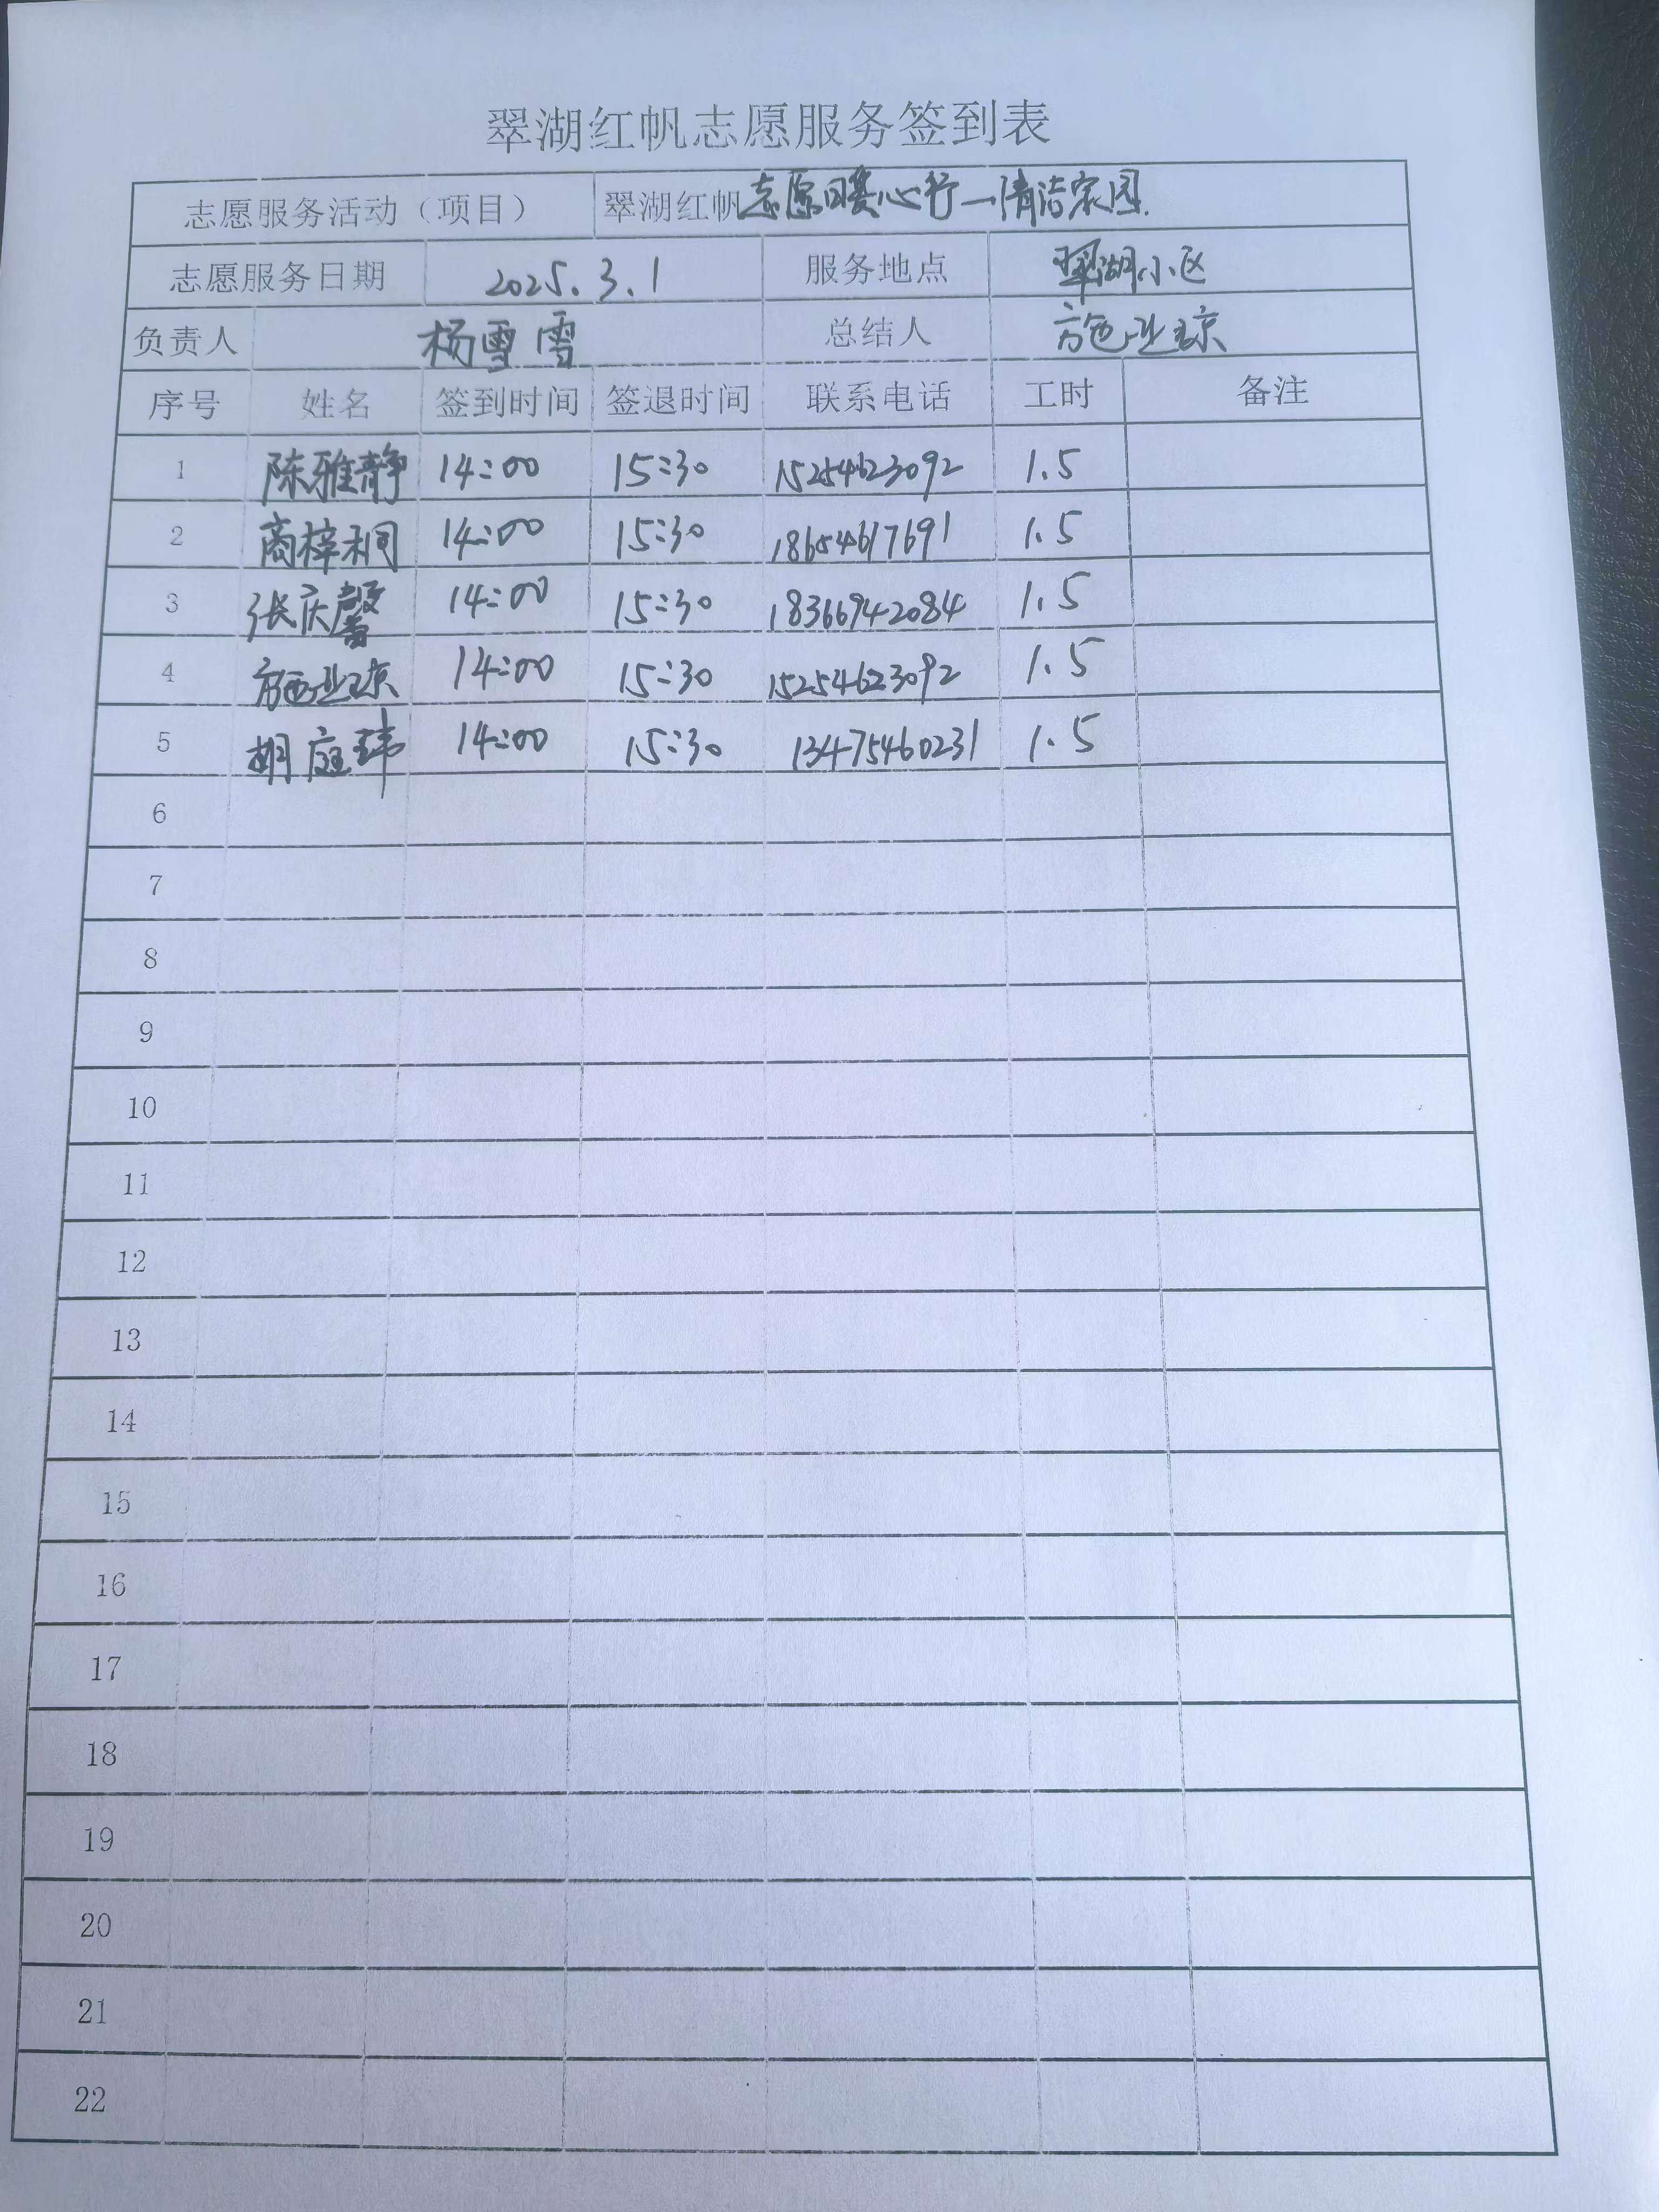 翠湖红帆志愿服务签到表
志愿服务活动（项目） 翠湖红帆志愿日暖心行—清洁家园
志愿服务日期 2025.3.1 服务地点 翠湖小区
负责人 杨雪雪 总结人
序号 姓名 签到时间 签退时间 联系电话 工时 备注
1 陈雅静 14:00 15:30 15254623092 1.5
2 商梓桐 14:00 15:30 18654617691 1.5
3 张庆馨 14:00 15:30 18366942084 1.5
4 14:00 15:30 15254623092 1.5
5 胡庭玮 14:00 15:30 13475460231 1.5
6
7
8
9
10
11
12
13
14
15
16
17
18
19
20
21
22